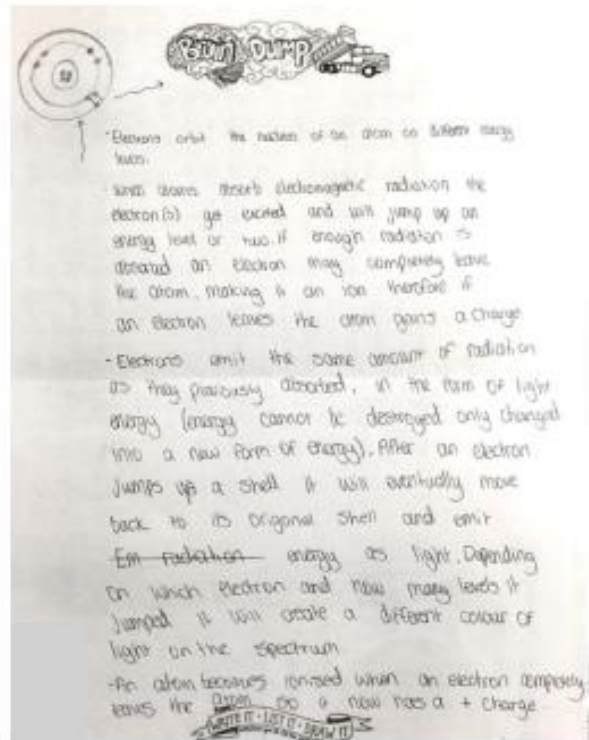 Brain Dump
- Electrons orbit the nucleus of an atom on different energy
levels.
- When atoms absorb electromagnetic radiation the
electron(s) get excited and will jump up an
energy level or two. If enough radiation is
absorbed an electron may completely leave
the atom, making it an ion therefore if
an electron leaves the atom gains a charge
- Electrons emit the same amount of radiation
as they previously absorbed, in the form of light
energy (energy cannot be destroyed only changed
into a new form of energy). After an electron
jumps up a shell it will eventually move
back to its original shell and emit
Em radiation energy as light. Depending
on which electron and how many levels it
jumped it will create a different colour of
light on the spectrum
- An atom becomes ionised when an electron completely
leaves the atom so it now has a + charge
WRITE IT • LIST IT • DRAW IT